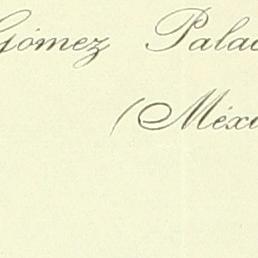 Gómez Palac
(Méxi